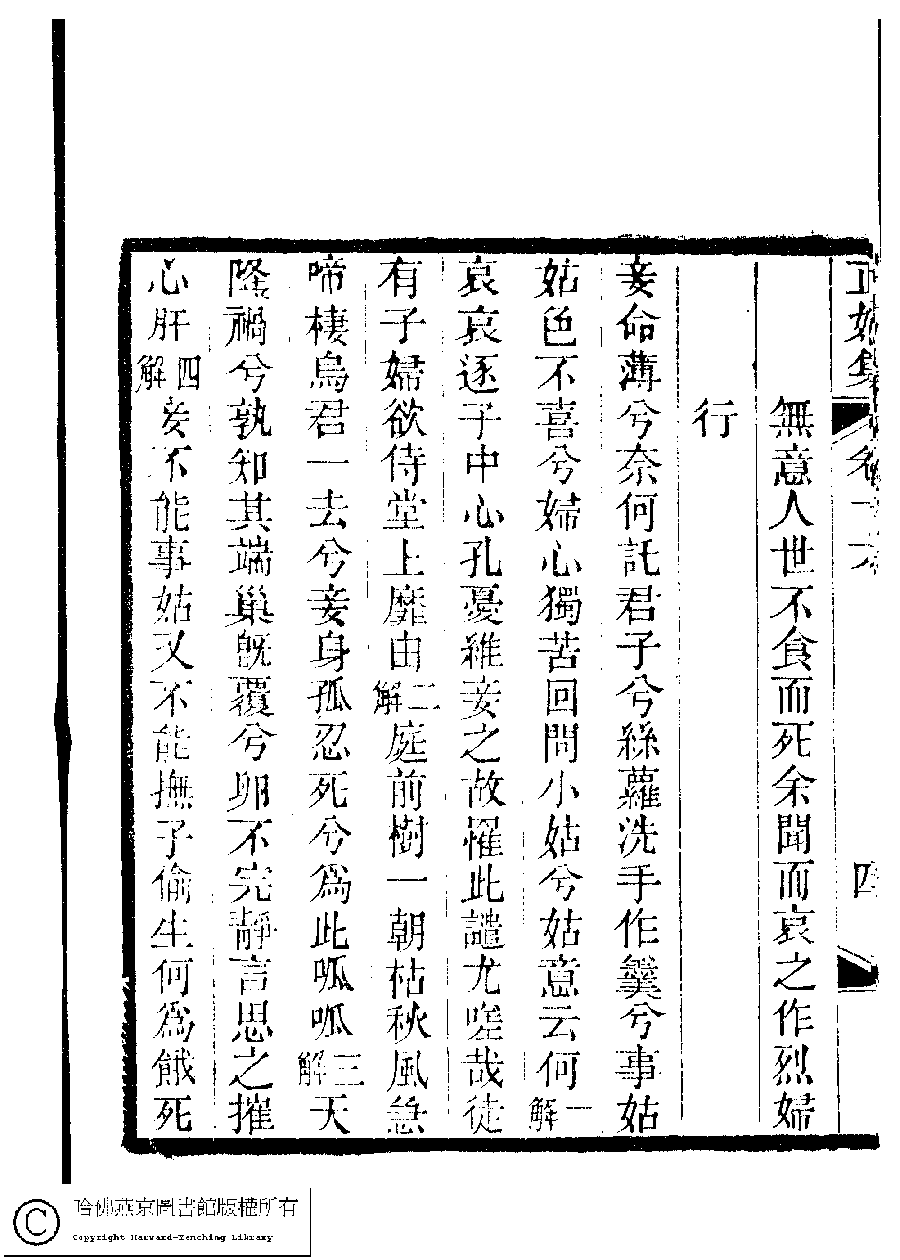 無意人世不食而死余聞而哀之作烈婦
行
妾命薄兮奈何託君子兮絲蘿洗手作羹兮事姑
姑色不喜兮婦心獨苦回問小姑兮姑意云何一解
哀哀逐子中心孔憂維妾之故罹此譴尤嗟哉徒
有子婦欲侍堂上靡由二解庭前樹一朝枯秋風急
啼棲烏君一去兮妾身孤忍死兮爲此呱呱三解天
隆禍兮孰知其端巢旣覆兮卵不完靜言思之摧
心肝四解妾不能事姑又不能撫子偷生何爲餓死
四
哈佛燕京圖書館版權所有
Copyright Harvard-Yenching Library